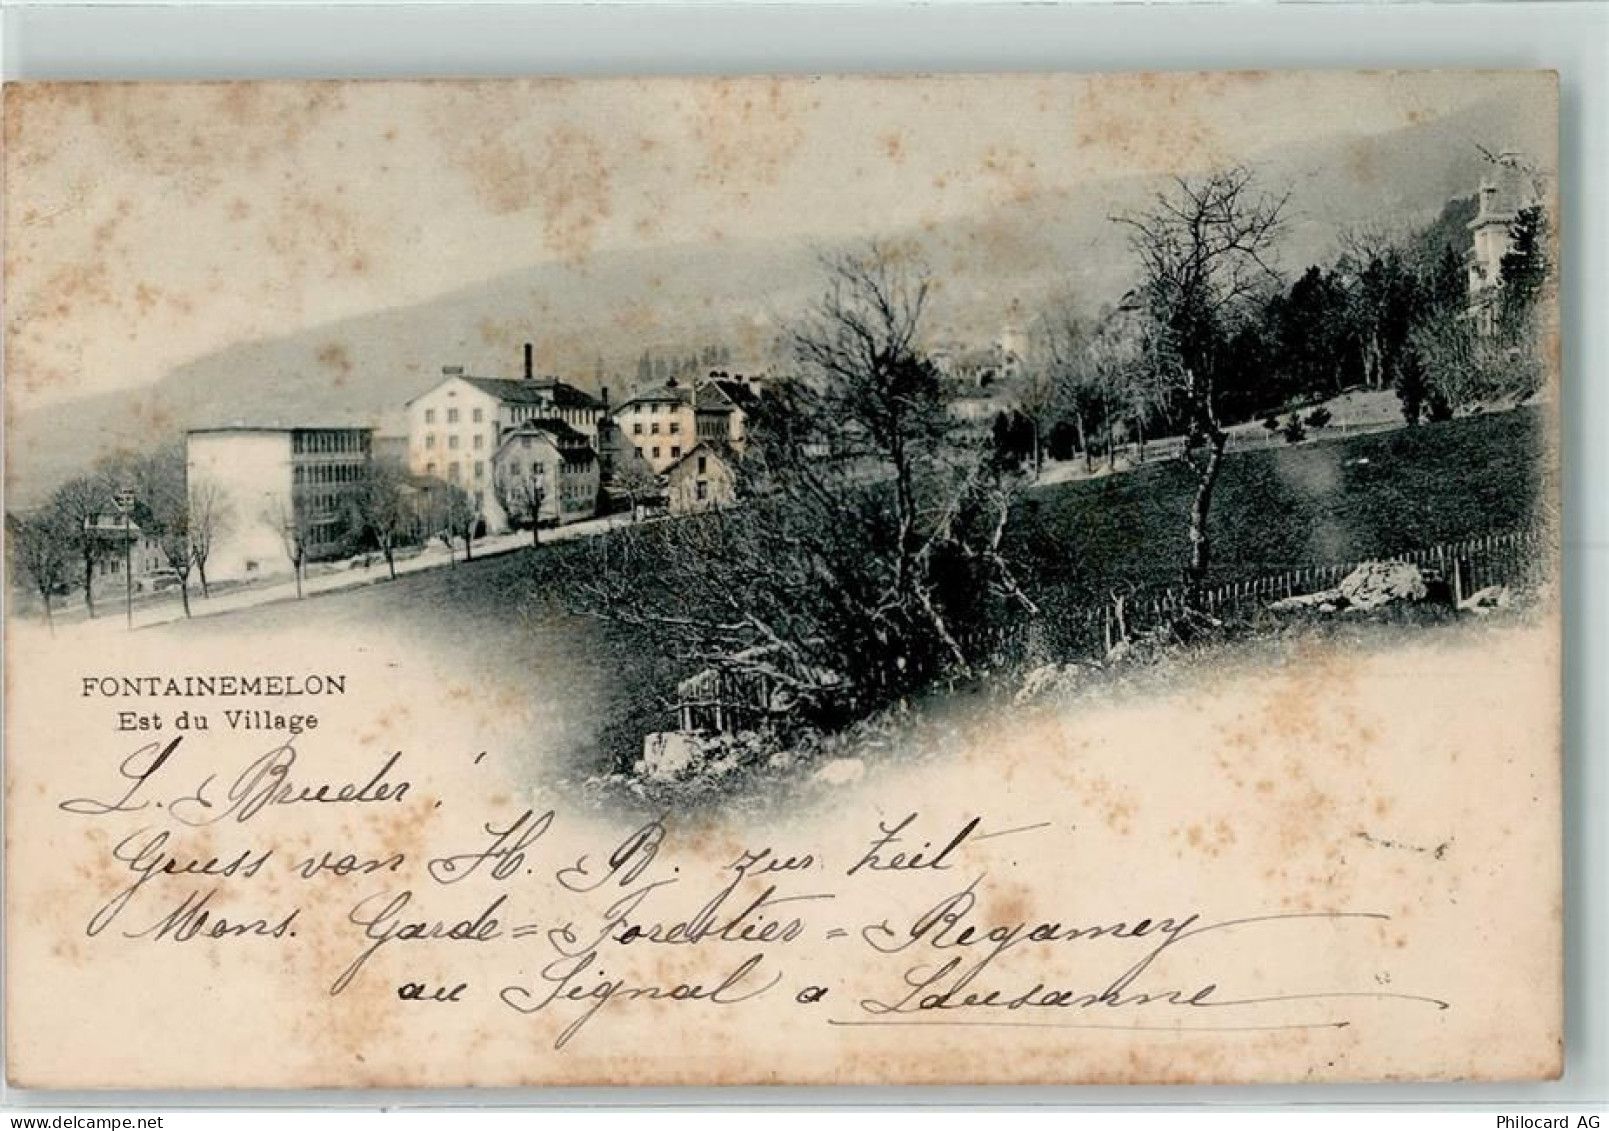 FONTAINEMELON
Est du Village
L. Bruder!
Gruss von H. B. zur Zeit
Mons. Garde=Forestier=Regamey
au Signal a Lausanne
Philocard AG